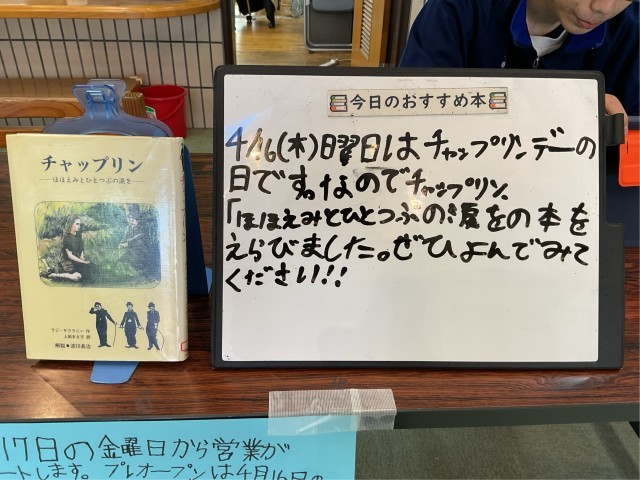 今日のおすすめ本
4/16(木)曜日はチャップリンデーの
日です。なのでチャップリン、
「ほほえみとひとつぶの涙をの本を
えらびました。ぜひよんでみて
ください!!
チャップリン
―ほほえみとひとつぶの涙を―
ラジ・サクラニー 作
上田まさ子 訳
解説●淀川長治
17日の金曜日から営業が
ートします。プレオープンは4月16日の